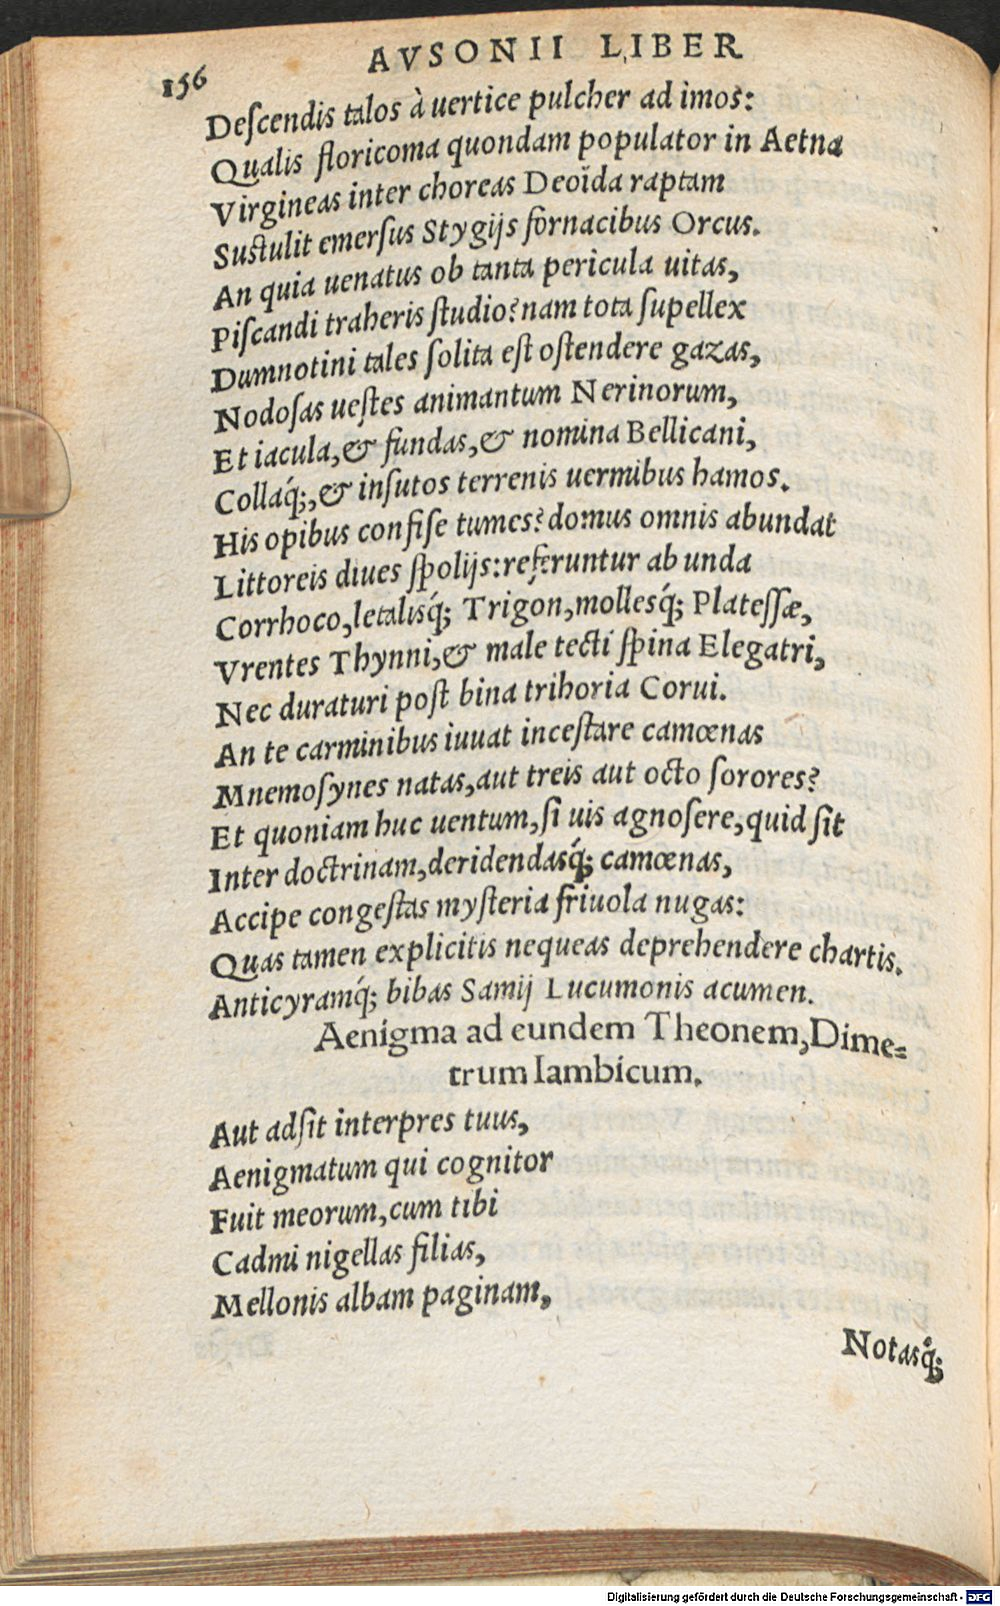 156
AVSONII LIBER
Deſcendis talos à uertice pulcher ad imos:
Qualis floricoma quondam populator in Aetna
Virgineas inter choreas Deoida raptam
Suſtulit emerſus Stygijs fornacibus Orcus.
An quia uenatus ob tanta pericula uitas,
Piſcandi traheris ſtudio? nam tota ſupellex
Dumnotini tales ſolita eſt oſtendere gazas,
Nodoſas ueſtes animantum Nerinorum,
Et iacula, & fundas, & nomina Bellicani,
Collaq́;, & inſutos terrenis uermibus hamos.
His opibus confiſe tumes? domus omnis abundat
Littoreis diues ſpolijs: referuntur ab unda
Corrhoco, letalisq́; Trigon, mollesq́; Plateſſæ,
Vrentes Thynni, & male tecti ſpina Elegatri,
Nec duraturi poſt bina trihoria Corui.
An te carminibus iuuat inceſtare camœnas
Mnemoſynes natas, aut treis aut octo ſorores?
Et quoniam huc uentum, ſi uis agnoſere, quid ſit
Inter doctrinam, deridendasq́; camœnas,
Accipe congeſtas myſteria friuola nugas:
Quas tamen explicitis nequeas deprehendere chartis.
Anticyramq́; bibas Samij Lucumonis acumen.
Aenigma ad eundem Theonem, Dime-
trum Iambicum.
Aut adſit interpres tuus,
Aenigmatum qui cognitor
Fuit meorum, cum tibi
Cadmi nigellas filias,
Mellonis albam paginam,
Notasq́;
Digitalisierung gefördert durch die Deutsche Forschungsgemeinschaft - DFG